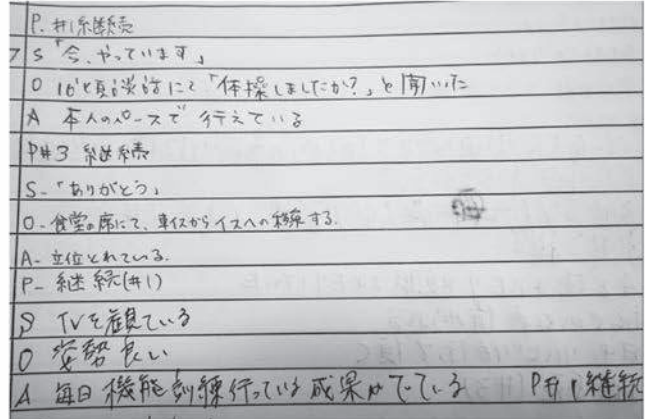 P. #1継続
7 S「今、やっています」
O 16°頃談話にて「体操しましたか?」と聞いた
A 本人のペースで行えている
P#3 継続
S-「ありがとう」
O-食堂の席にて、車イスからイスへの移乗する。
A-立位とれている。
P-継続(#1)
S TVを観ている
O 姿勢良い
A 毎日機能訓練行っている成果がでている P#1継続